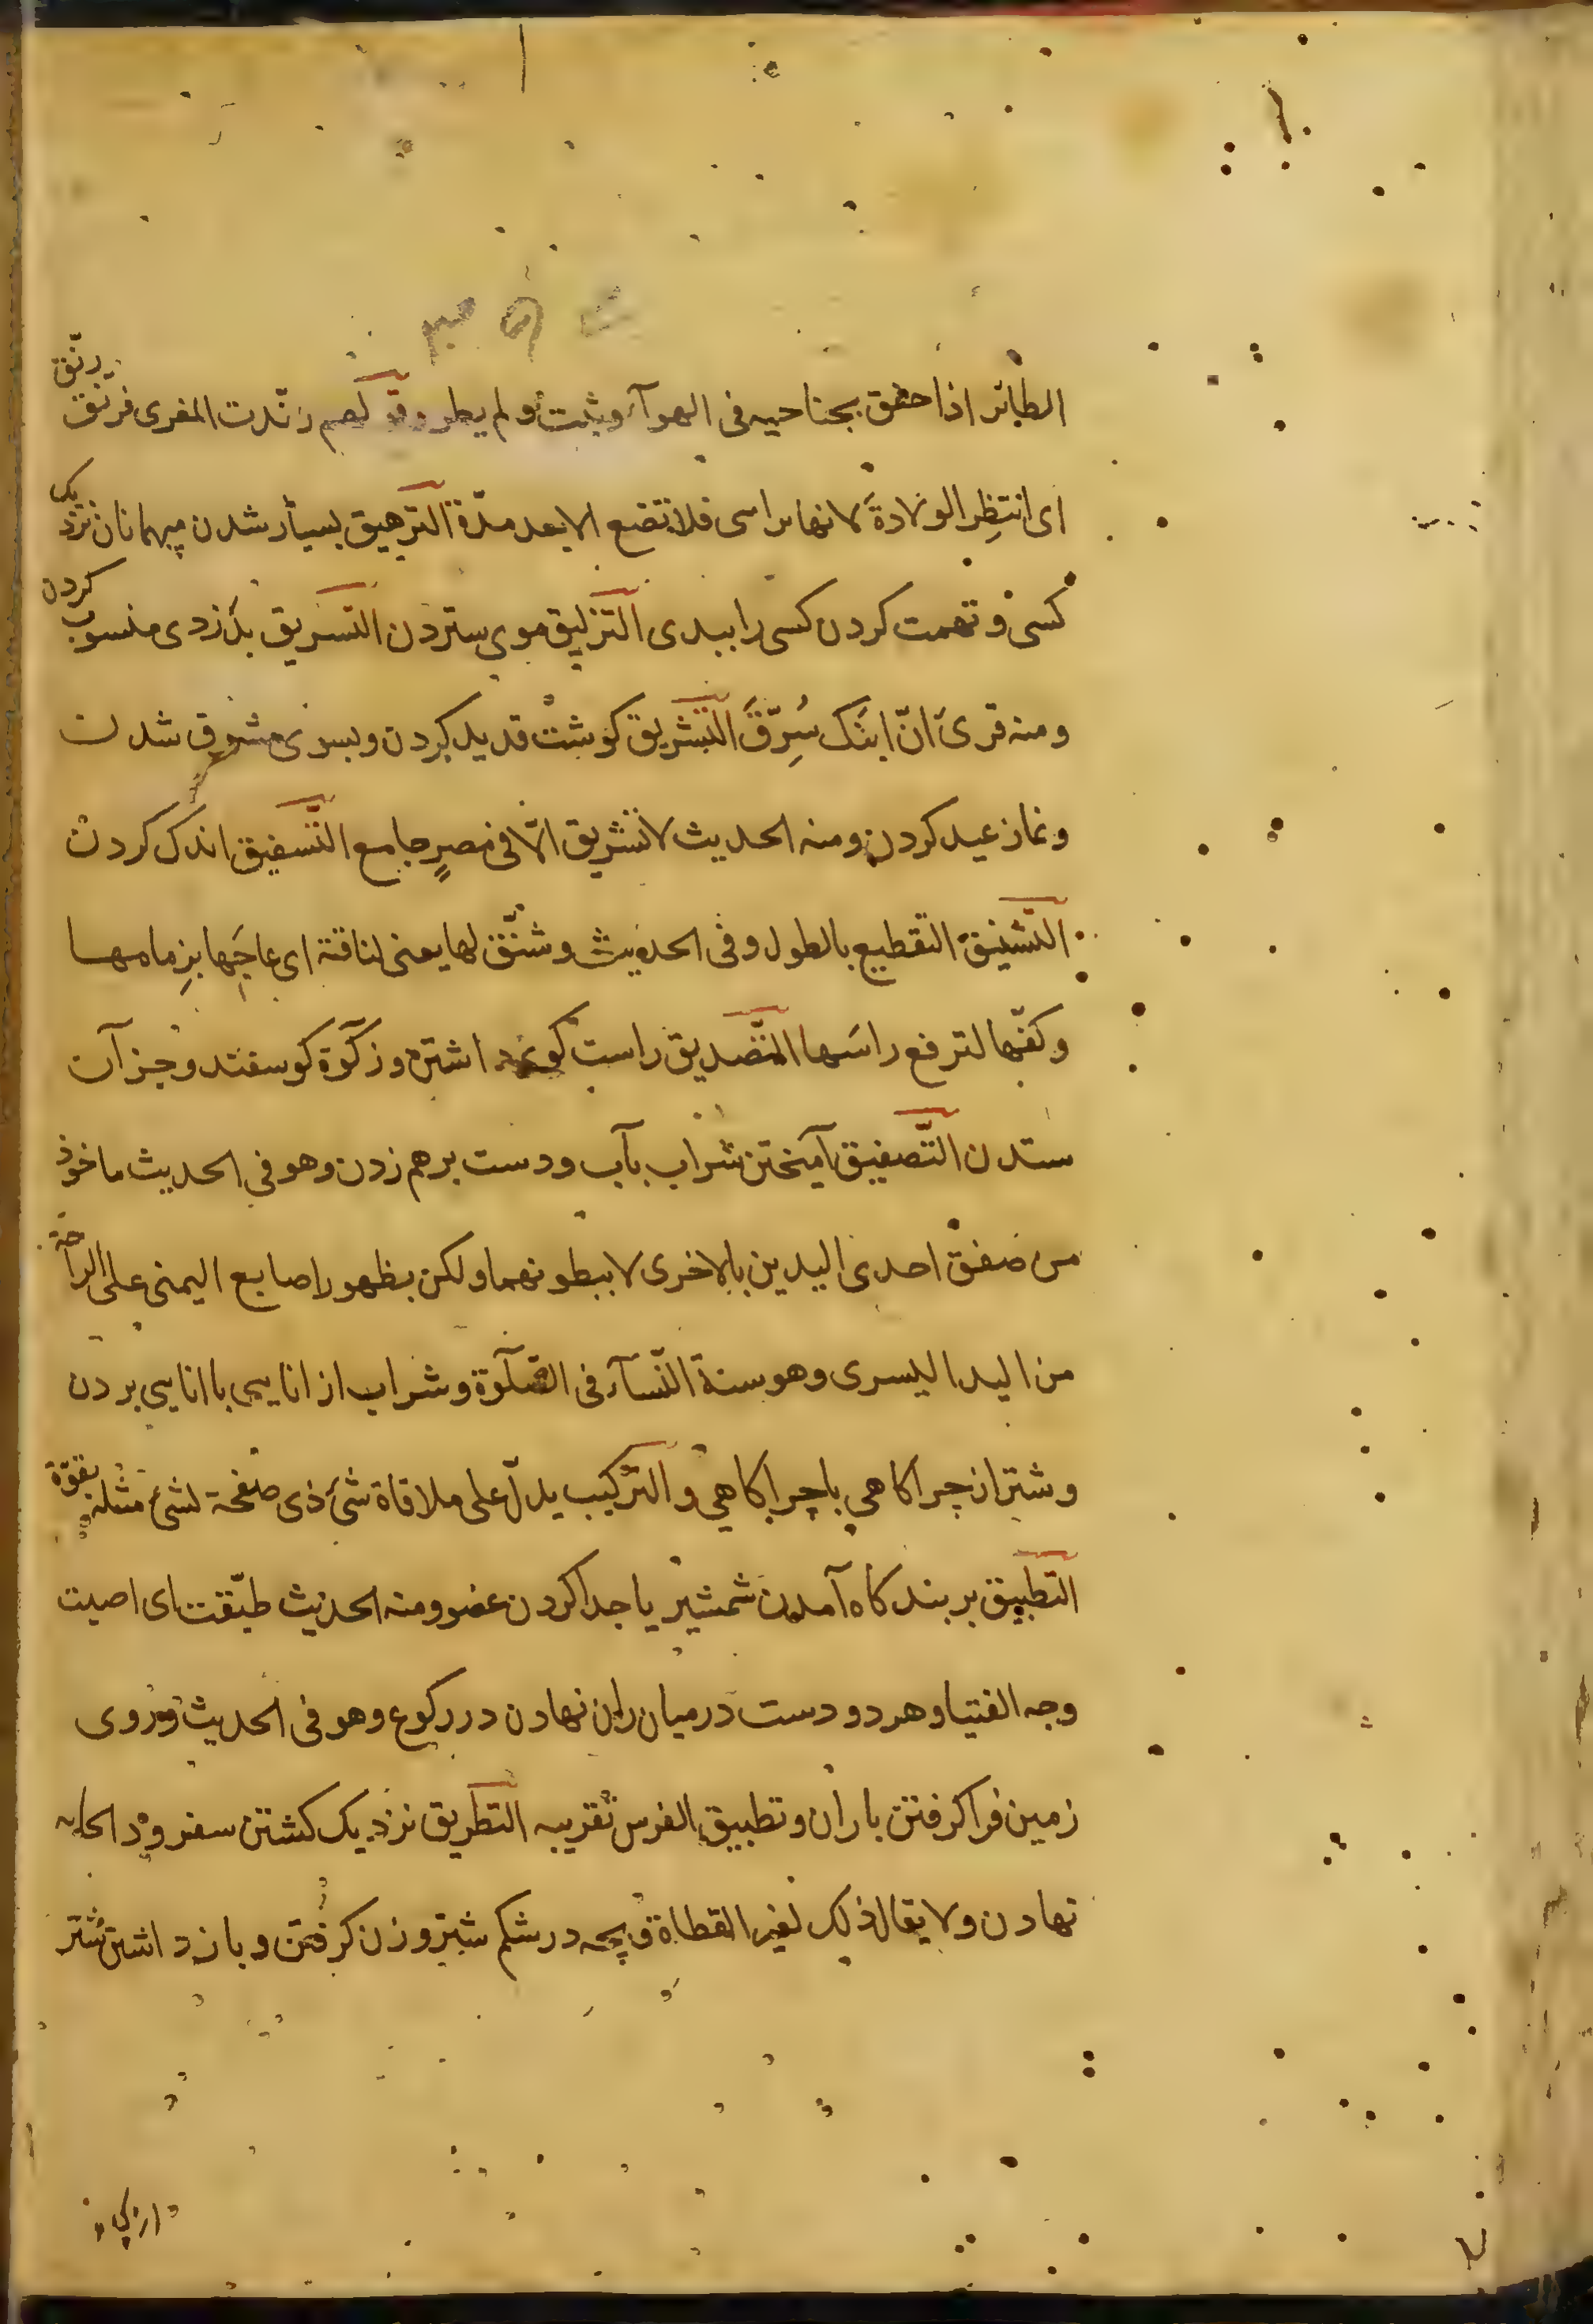 الطائر اذا خفق بجناحيه فى الهوآء وثبت و لم يطر وقولهم رنّدت المعزى فرنّق رنّق
اى انتظر الولادة لانها براسى فلا تضع الا بعد مدّة الترهيق بسيار شدن ميهمانان نزديك
كسى و تهمت كردن كسى را ببدى التزليق موى ستردن التسريق بدزدى منسوب كردن
ومنه قرئ انّ ابنك سُرِّقَ التشريق كوشت قديد كردن و بسوى مشرق شدن
و نماز عيد كردن ومنه الحديث لا تشريق الّا فى مصرٍ جامع التشفيق اندك كردن
التشنيق التقطيع بالطول وفى الحديث وشنّق لها يعنى لناقته اى عاجَها بزِمامها
وكفّها لترفع راسَها التصديق راست كوى داشتن و زكوة كوسفند و جز آن
ستدن التّصفيق آميختن شراب بآب و دست برهم زدن وهو فى الحديث ماخوذ
من صفق احدى اليدين بالاخرى لا ببطونهما ولكن بظهور اصابع اليمنى على الراحة
من اليد اليسرى وهو سنة النّسآء فى الصّلوة و شراب از انايى با انايى بردن
و شتر از چراكاهى با چراكاهى و التركيب يدلّ على ملاقاة شئ ذى صفحة لشئ مثله بقوّة
التطبيق بر بند كاه آمدن شمشير يا جدا كردن عضو ومنه الحديث طبّقت اى اصبت
وجه الفتيا و هر دو دست در ميان ران نهادن در ركوع وهو فى الحديث و روى
زمين فرا كرفتن باران و تطبيق الفرس تقريبه التطريق نزديك كشتن سفرود الخايه
نهادن ولا يقال ذلك لغير القطاة و بچه در شكم شتر و زن كرفتن و باز داشتن شتر